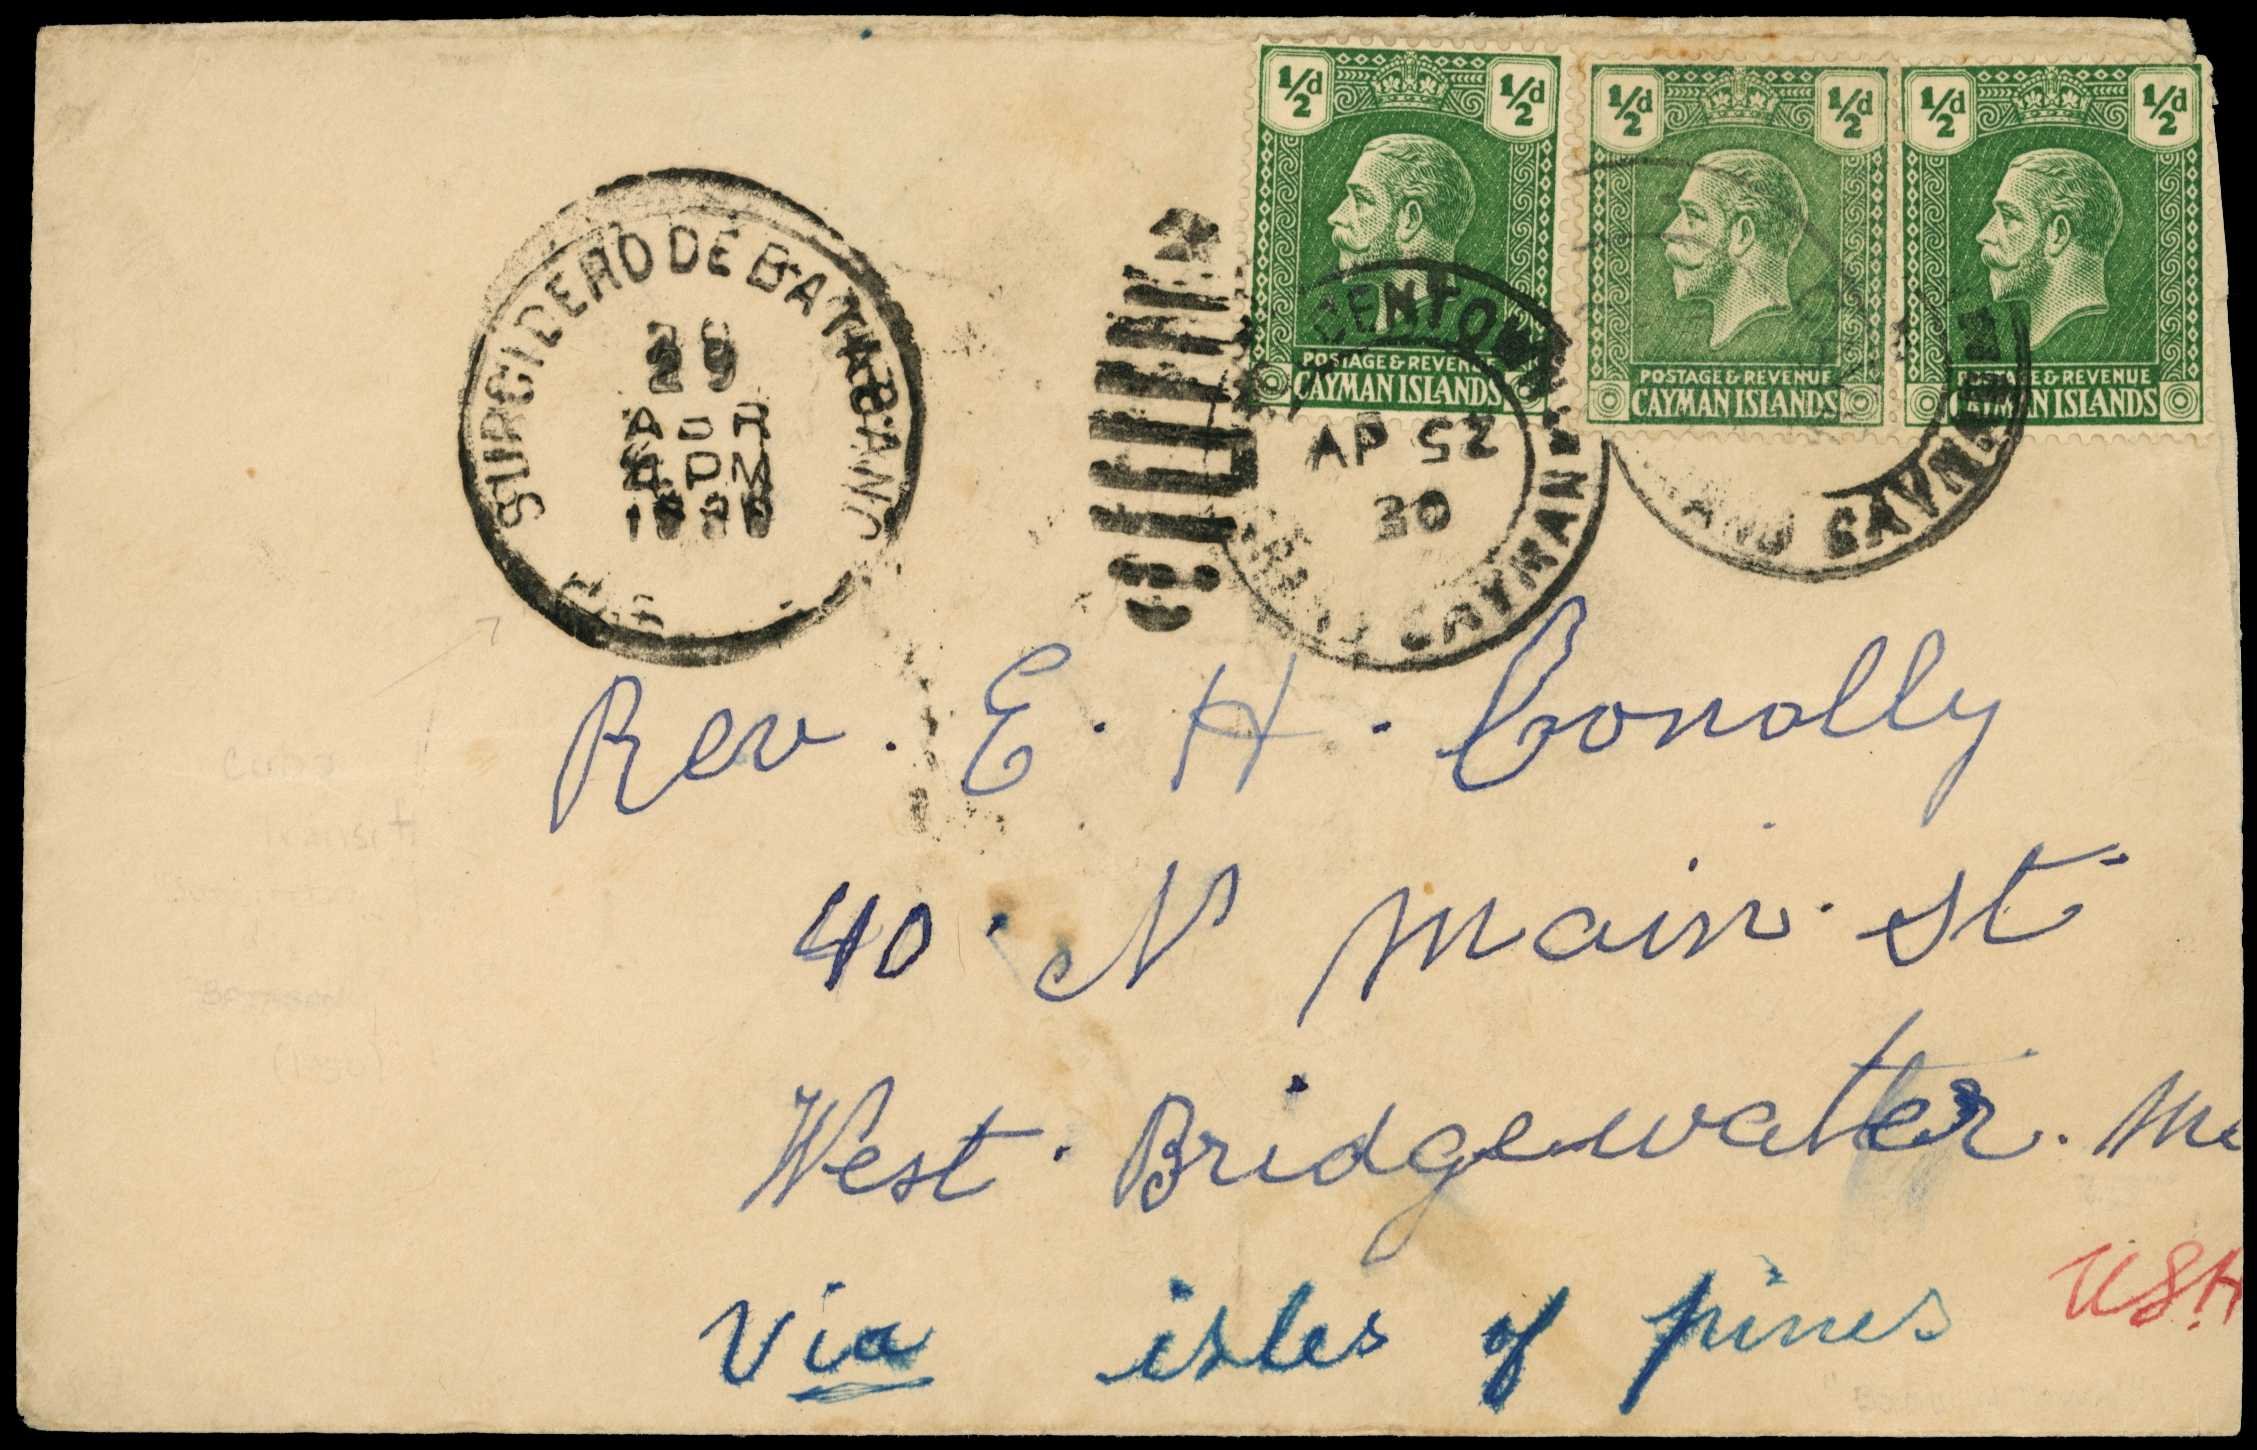 ½d ½d ½d ½d ½d ½d
POSTAGE & REVENUE
CAYMAN ISLANDS
POSTAGE & REVENUE
CAYMAN ISLANDS
POSTAGE & REVENUE
CAYMAN ISLANDS
SURGIDERO DE BATABANO
29
4 PM
GEORGETOWN
AP 25
30
GRAND CAYMAN
GRAND CAYMAN
Rev. E. H. Conolly
40 N Main St
West. Bridgewater.
Via isles of pines
USA
Cuba
Transit
(1930)